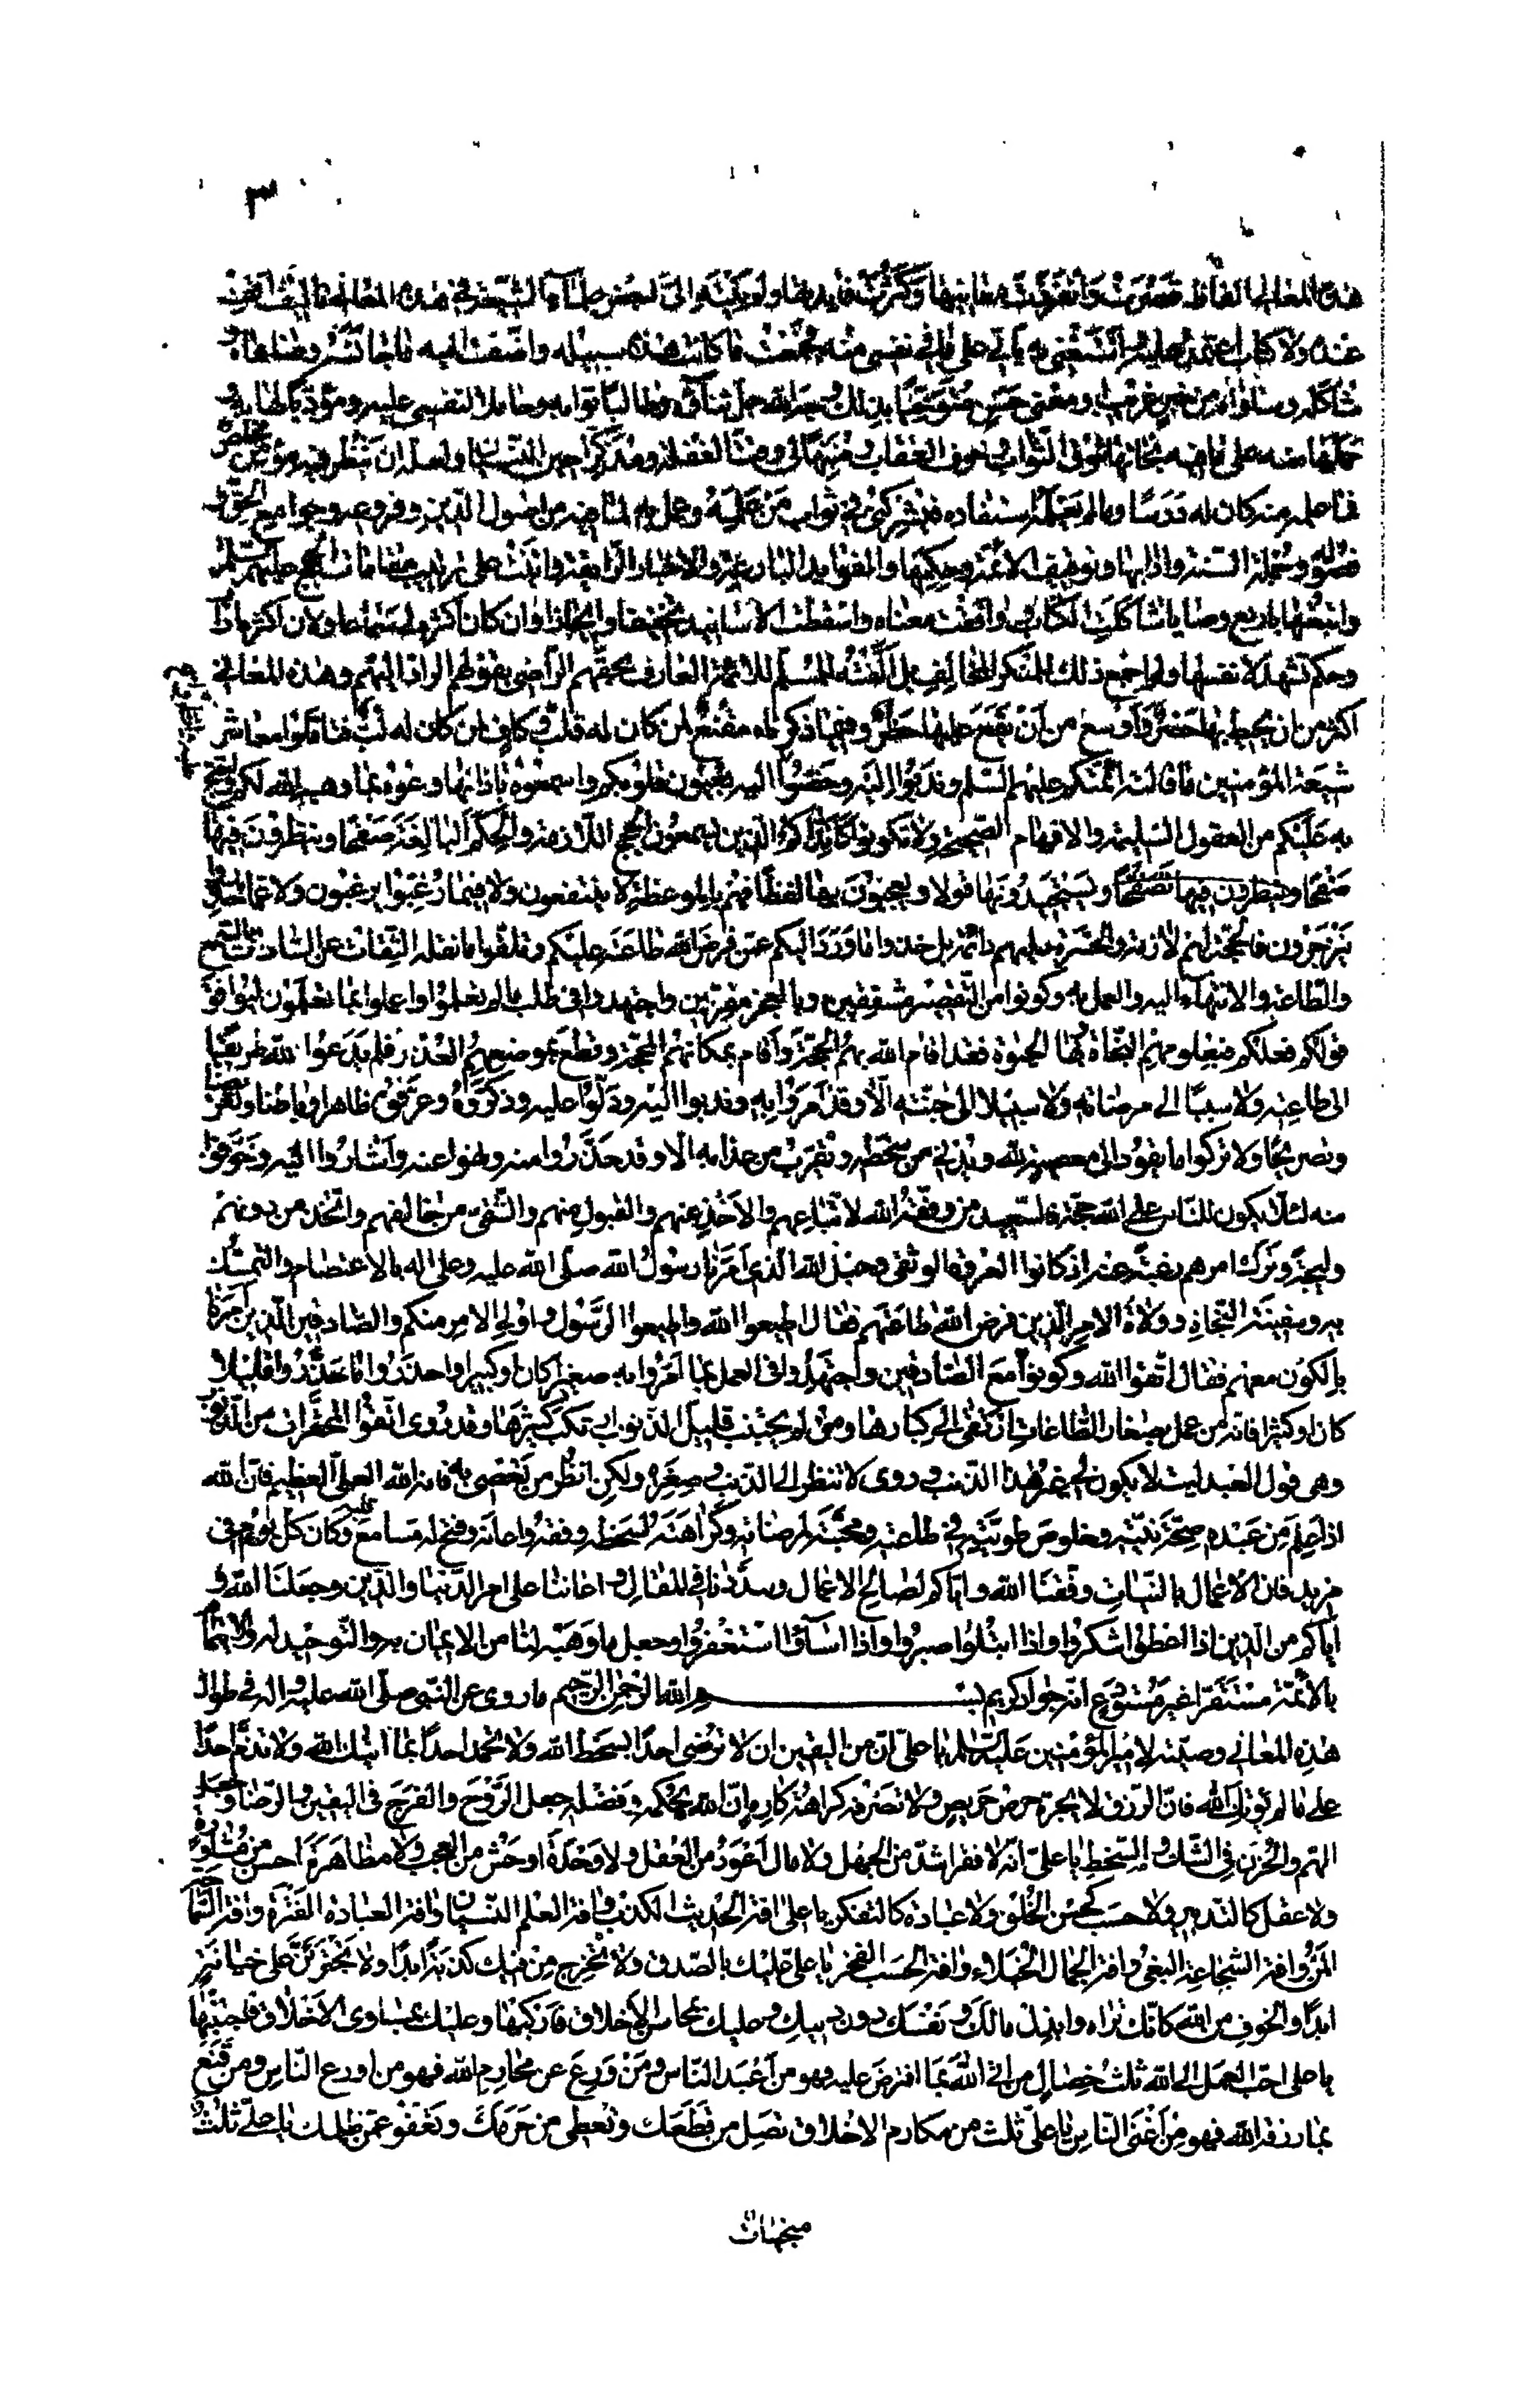 ٣
هذه المعاني الفاظ قصرت وانفردت معانيها وكثرت فايدتها ولم ينته الى لبعض علماء الشيعة في هذه المعاني تاليف اقف
عنده ولا كتاب اعتمد عليه واستغني به يأتي على ما في نفسي منه فجمعت ما كانت هذه سبيله واضفت اليه ما جانسه وضاهاه و
شاكله وساواه من خبر غريب او معنى حسن متوخيا بذلك وجه الله جل ثناؤه وطالبا ثوابه وحاملا لنفسي عليه ومؤدبا لها به و
حملها منه على ما فيه نجاتها شوق الثواب وخوف العقاب ومنبها لي وقت الغفلة ومذكرا حين النسيان ولعله ان ينظر فيه مؤمن مخلص
فما علمه منه كان له درسا وما لم يعلمه استفاده فيشركني في ثواب من علمه وعمل به لما فيه من اصول الدين وفروعه وجوامع الحق و
فصوله وجملة السنة وادابها وتوقيف الائمة وحكمها والفوايد البارعة والاخبار الرائقة واتيت على ترتيب مقامات الحجج عليهم السلم
واتبعتها باربع وصايا شاكلت الكتاب ووافقت معناه واسقطت الاسانيد تخفيفا وايجازا وان كان اكثره لي سماعا ولان اكثره اداب
وحكم تشهد لانفسها ولم اجمع ذلك للمنكر المخالف بل الفته للمسلم للائمة العارف بحقهم الراضي بقولهم الراد اليهم وهذه المعاني
اكثر من ان يحيط بها حصر واوسع من ان يقع عليها حظر وفيما ذكرناه مقنع لمن كان له قلب وكاف لمن كان له لب فتاملوا معاشر
شيعة المؤمنين ما قالته ائمتكم عليهم السلم وندبوا اليه وحضوا عليه بعيون قلوبكم واسمعوه باذانها وعوه بما وهب الله لكم واحتج
به عليكم من العقول السليمة والافهام الصحيحة ولا تكونوا كاندادكم الذين يسمعون الحجج اللازمة والحكم البالغة صفحا وينظرون فيها
تصفحا ويستجيدونها قولا ويعجبون بها لفظا فهم بالموعظة لا ينتفعون ولا فيما رغبوا يرغبون ولا عما حذروا
ينزجرون فالحجة لهم لازمة والحسرة عليهم دائمة بل خذوا ما ورد اليكم عمن فرض الله طاعته عليكم وتلقوا ما نقله الثقات عن السادات بالسمع
والطاعة والانتهاء اليه والعمل به وكونوا من التقصير مشفقين وبالعجز مقرين واجتهدوا في طلب ما لم تعلموا واعملوا بما تعلمون ليوافق
قولكم فعلكم فبعلومهم النجاة وبها الحيوة فقد اقام الله بهم الحجة واقام بمكانهم المحجة وقطع بموضعهم العذر فلم يدعوا لله طريقا
الى طاعته ولا سببا الى مرضاته ولا سبيلا الى جنته الا وقد امروا به وندبوا اليه ودلوا عليه وذكروه وعرفوه ظاهرا وباطنا وتعريضا
وتصريحا ولا تركوا ما يقود الى معصية الله ويدني من سخطه ويقرب من عذابه الا وقد حذروا منه ونهوا عنه واشاروا اليه وخوفوا
منه لئلا يكون للناس على الله حجة فالسعيد من وفقه الله لاتباعهم والاخذ عنهم والقبول منهم والشقي من خالفهم واتخذ من دونهم
وليجة وترك امرهم رغبة عنه اذ كانوا العروة الوثقى وحبل الله الذي امرنا رسول الله صلى الله عليه وعلى اله بالاعتصام والتمسك
به وسفينة النجاة وولاة الامر الذين فرض الله طاعتهم فقال اطيعوا الله واطيعوا الرسول واولي الامر منكم والصادقين الذين امرنا
بالكون معهم فقال اتقوا الله وكونوا مع الصادقين واجتهدوا في العمل بما امروا به صغيرا كان او كبيرا واحذروا ما حذروا قليلا
كان او كثيرا فانه من عمل بصغار الطاعات ارتقى الى كبارها ومن لم يجتنب قليل الذنوب ارتكب كثيرها وقد روي اتقوا المحقرات من الذنوب
وهي قول العبد ليت لا يكون لي غير هذا الذنب وروي لا تنظر الى الذنب وصغره ولكن انظر من تعصي به فانه الله العلي العظيم فان الله
اذا علم من عبده صحة نيته وخلوص طويته في طاعته ومحبته لمرضاته وكراهته لسخطه وفقه واعانه وفتح له مسامع قلبه وكان كل يوم في
مزيد فان الاعمال بالنيات وفقنا الله واياكم لصالح الاعمال وسددنا في المقال واعاننا على امر الدنيا والدين وجعلنا الله و
اياكم من الذين اذا اعطوا شكروا واذا ابتلوا صبروا واذا اساؤا استغفروا وجعل ما وهبه لنا من الايمان به والتوحيد له والايتمام
بالائمة مستقرا غير مستودع انه جواد كريم بسم الله الرحمن الرحيم ما روي عن النبي صلى الله عليه واله في طوال
هذه المعاني وصيته لامير المؤمنين عليه السلم يا علي ان من اليقين ان لا ترضي احدا بسخط الله ولا تحمد احدا بما اتيك الله ولا تذم احدا
على ما لم يؤتك الله فان الرزق لا يجره حرص حريص ولا تصرفه كراهة كاره ان الله بحكمه وفضله جعل الروح والفرج في اليقين والرضا وجعل
الهم والحزن في الشك والسخط يا علي انه لا فقر اشد من الجهل ولا مال اعود من العقل ولا وحدة اوحش من العجب ولا مظاهرة احسن من مشاورة
ولا عقل كالتدبير ولا حسب كحسن الخلق ولا عبادة كالتفكر يا علي افة الحديث الكذب وافة العلم النسيان وافة العبادة الفترة وافة السماحة
المن وافة الشجاعة البغي وافة الجمال الخيلاء وافة الحسب الفخر يا علي عليك بالصدق ولا تخرج من فيك كذبة ابدا ولا تجترئن على خيانة
ابدا والخوف من الله كانك تراه وابذل مالك ونفسك دون دينك وعليك بمحاسن الاخلاق فاركبها وعليك بمساوي الاخلاق فاجتنبها
يا علي احب العمل الى الله ثلث خصال من اتى الله بما افترض عليه فهو من اعبد الناس ومن ورع عن محارم الله فهو من اورع الناس ومن قنع
بما رزقه الله فهو من اغنى الناس يا علي ثلث من مكارم الاخلاق تصل من قطعك وتعطي من حرمك وتعفو عمن ظلمك يا علي ثلث
منجيات